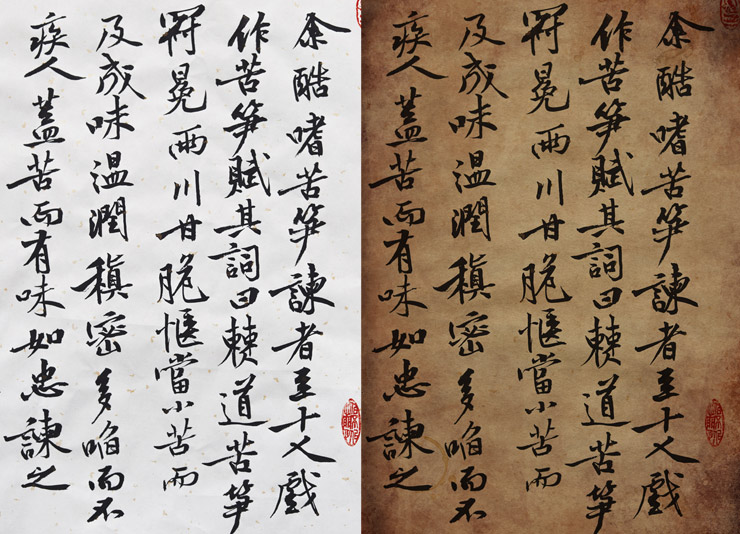 余酷嗜苦笋諫者至十人戲
作苦笋賦其詞曰僰道苦笋
冠冕兩川甘脆愜當小苦而
及成味温潤稹密多啗而不
疾人蓋苦而有味如忠諫之
余酷嗜苦笋諫者至十人戲
作苦笋賦其詞曰僰道苦笋
冠冕兩川甘脆愜當小苦而
及成味温潤稹密多啗而不
疾人蓋苦而有味如忠諫之